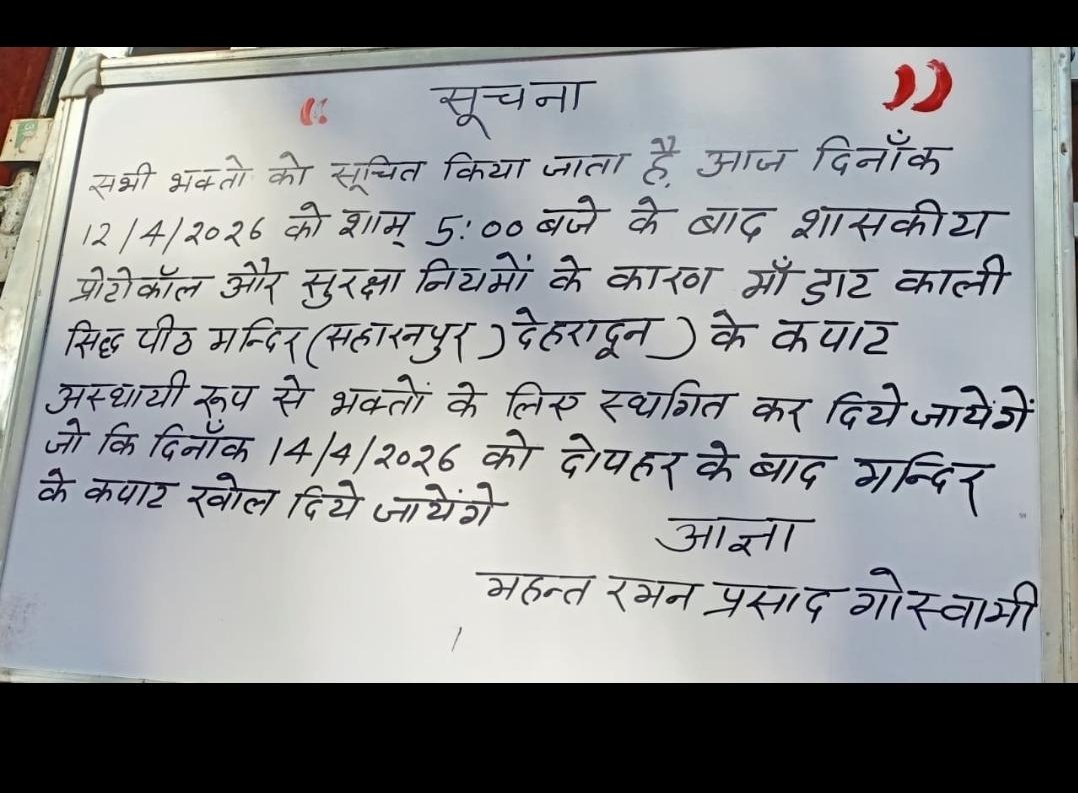 सूचना
सभी भक्तो को सूचित किया जाता है, आज दिनाँक
12/4/2026 को शाम् 5:00 बजे के बाद शासकीय
प्रोटोकॉल और सुरक्षा नियमों के कारण माँ डाट काली
सिद्ध पीठ मन्दिर (सहारनपुर) देहरादून) के कपाट
अस्थायी रूप से भक्तों के लिए स्थगित कर दिये जायेंगें
जो कि दिनाँक 14/4/2026 को दोपहर के बाद मन्दिर
के कपाट खोल दिये जायेंगे
आज्ञा
महन्त रमन प्रसाद गोस्वामी